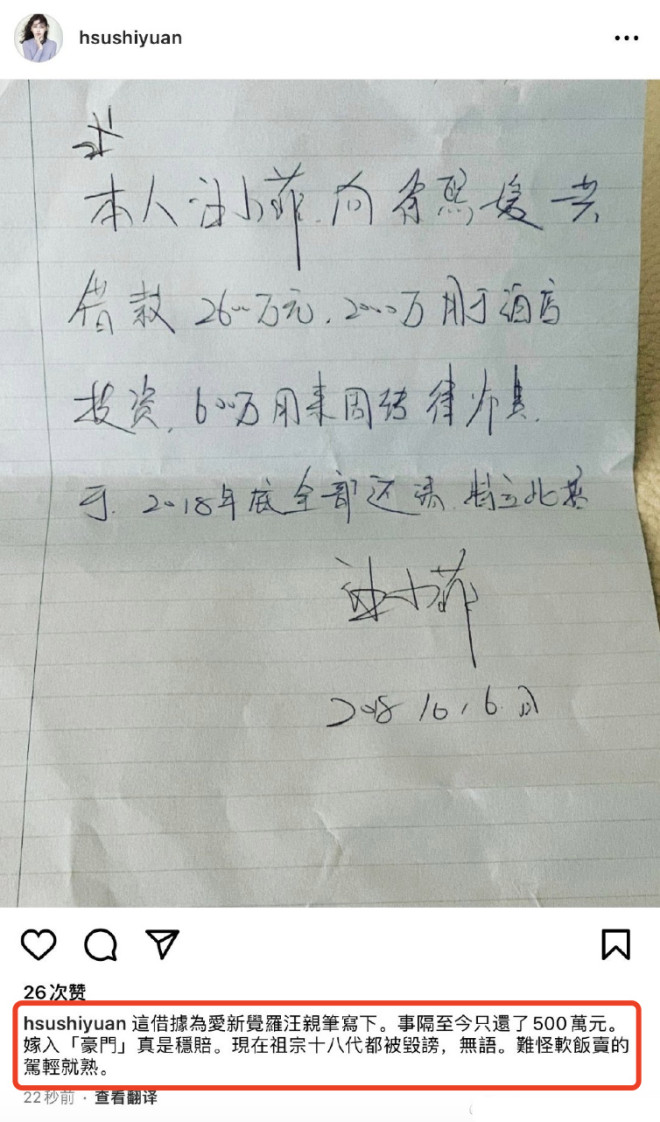 hsushiyuan
本人汪小菲.向徐熙媛共
借款2600万元.2000万用于酒店
投资.600万用来周转律师费.
于.2018年底全部还清.特立此据
汪小菲
2018 10.6.
26次赞
hsushiyuan 這借據為愛新覺羅汪親筆寫下。事隔至今只還了500萬元。
嫁入「豪門」真是穩賠。現在祖宗十八代都被毀謗，無語。難怪軟飯賣的
駕輕就熟。
22秒前 · 查看翻译